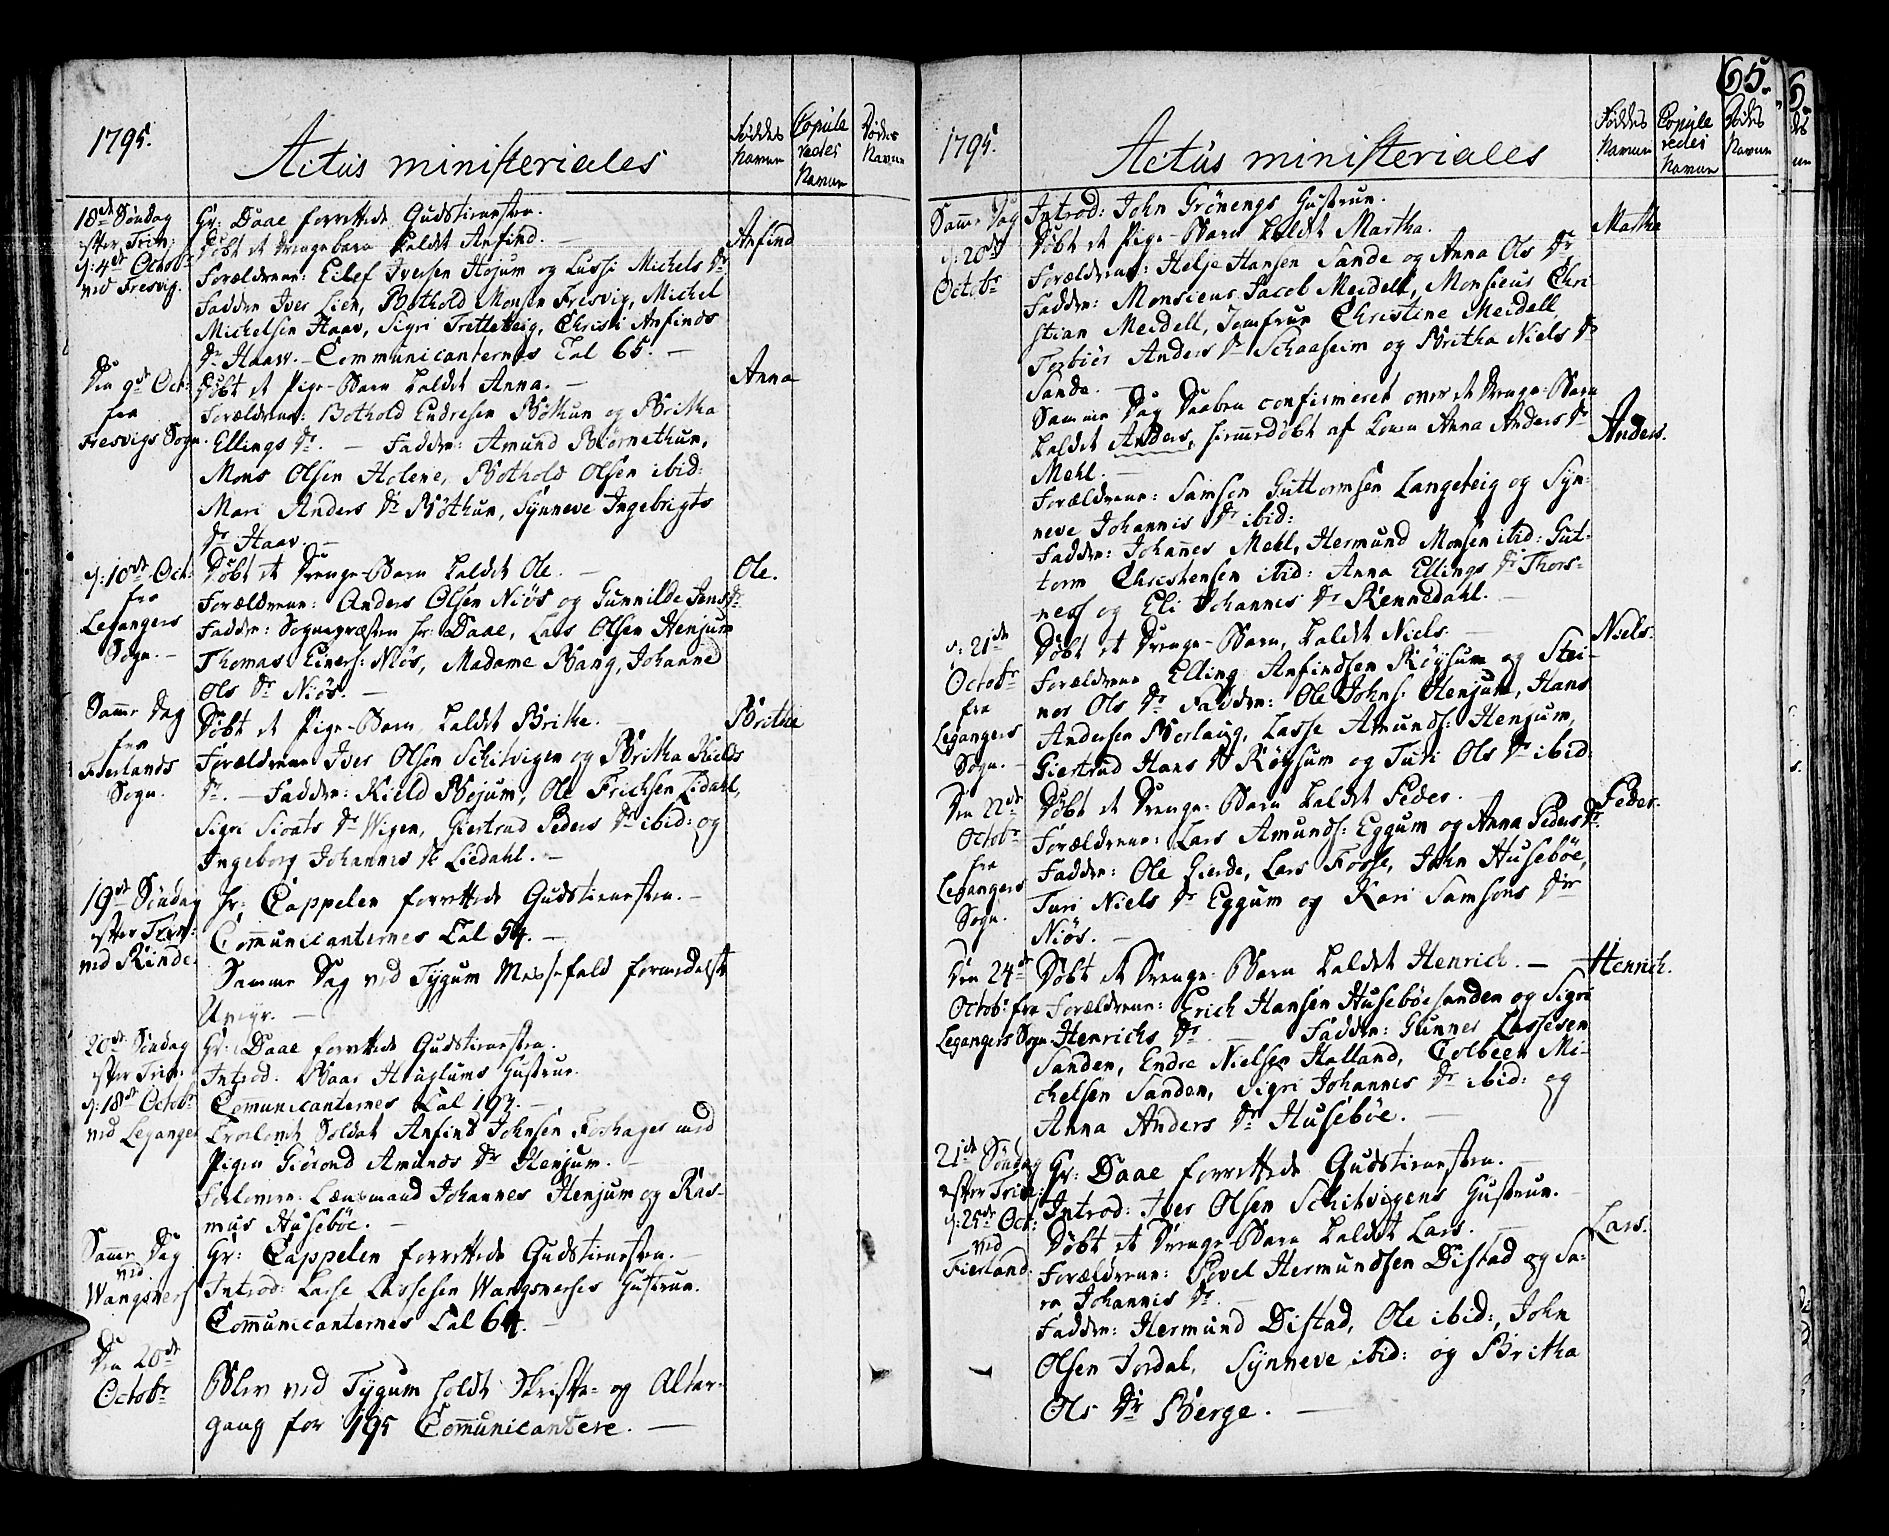 1795.
Actus ministeriales
Føddes Navne
Copule redes Navne
Dødes Navne
18de Søndag
efter Trin:
d: 4de Octobr
ved Fresvig.
Hr: Daae forrettede Gudstienesten.
Døbt et Drenge barn kaldet Anfind. —
Anfind
Forældrene: Eilef Iversen Højum og Lussi Michels Dr
Faddere Iver Lien, Bothold Monsen Fresvig, Michel
Michelsen Haav, Sigri Tretteteig, Christi Anfinds
Dr Haav. — Communicanternes Tal 65. —
Den 9de Oct:
fra
Fresvigs Sogn.
Døbt et Pige-Barn kaldet Anna. —
Anna
Forældrene: Bothold Endresen Bøthun og Britha
Ellings Dr. — Faddere: Amund Børnethun,
Mons Olsen Holene, Bothold Olsen ibid:
Mari Anders Dr Bøthun, Synneve Ingebrigts
Dr Haav. —
d: 10de Oct:
fra
Legangers
Sogn. —
Døbt et Drenge-Barn kaldet Ole. —
Ole.
Forældrene: Anders Olsen Niøs og Gunnilde Jens Dr.
Faddere: Sognepræsten Hr: Daae, Lars Olsen Henjum
Thomas Einers: Niøs, Madame Bang, Johanne
Ols Dr Niøs. —
Samme Dag
fra
Fierlands
Sogn.
Døbt et Pige-Barn, kaldet Brithe. —
Britha
Forældrene Iver Olsen Schitvigen og Britha Kields
Dr. — Faddere: Kield Bøjum, Ole Erichsen Lidahl,
Sigri Sioats Dr Wigen, Giertrud Peders Dr ibid: og
Ingeborg Johannis Dr Liedahl. —
19de Søndag
efter Trin:
ved Rinde
Hr: Cappelen forrettede Gudstienesten. —
Communicanternes Tal 54. —
Samme Dag ved Tygum Messefald formedelst
Uveyr. —
20de Søndag
efter Trin:
d: 18de Octobr
ved Leganger
Hr: Daae forrettede Gudstienesten.
Introd: Baar Hauglums Hustrue.
Comunicanternes Tal 193. —
Trolovet Soldat Anfind Johnsen Foshages med
Pigen Giørond Amunds Dr Henjum. —
Forlovere: Lænsmand Johannes Henjum og Ras-
mus Husebøe. —
Samme Dag
ved
Wangsnes
Hr: Cappelen forrettede Gudstienesten. —
Introd: Lasse Lassesen Wangsneses Hustrue.
Communicanternes Tal 64. —
Den 20de
Octobr
Blev ved Tygum holdt Skrifte- og Altar-
gang for 195 Communicantere. —
65.
1795.
Actus ministeriales
Føddes Navne
Copule redes Navne
Dødes Navne
Samme Dag
Introd: John Grønengs Hustrue.
d: 20de
Octobr
Døbt et Pige-Barn kaldet Martha.
Martha
Forældrene: Helje Hansen Sande og Anna Ols Dr
Faddere: Monsieur Jacob Meidell, Monsieur Chri-
stian Meidell, Jomfrue Christine Meidell,
Torbiør Anders Dr Schaaseim og Britha Niels Dr
Sande. —
Samme Dag Daaben confirmeret over et Drenge-Barn
kaldet Anders, hiemmedøbt af Konen Anna Anders Dr
Anders.
Mehl. —
Forældrene: Samson Guttormsen Langeteig og Syn-
neve Johannis Dr ibid:
Faddere: Johannes Mehl, Hermund Monsen ibid: Gut-
torm Christensen ibid: Anna Ellings Dr Thors-
ness og Eli Johannis Dr Rennedahl. —
d: 21de
Octobr
fra
Legangers
Sogn. —
Døbt et Drenge-Barn, kaldet Niels. —
Niels.
Forældrene Elling Anfindsen Røysum og Stei-
nor Ols Dr Faddere: Ole Johns: Henjum, Hans
Andersen Borlaug, Lasse Amunds: Henjum,
Giertrud Hans Dr Røysum og Turi Ols Dr ibid:
Den 22de
Octobr
fra
Legangers
Sogn.
Døbt et Drenge-Barn kaldet Peder. —
Peder.
Forældrene: Lars Amunds: Eggum og Anna Peders Dr.
Faddere: Ole Gierde, Lars Fosse, John Husebøe,
Turi Niels Dr Eggum og Kari Samsons Dr
Niøs. —
Den 24de
Octob: fra
Legangers Sogn
Døbt et Drenge-Barn kaldet Henrich. —
Henrich.
Forældrene: Erich Hansen Husebøesanden og Sigri
Henrichs Dr. — Faddere: Gunner Lassesen
Sanden, Endre Nielsen Hatland, Colbeen Mi-
chelsen Sanden, Sigri Johannis Dr ibid: og
Anna Anders Dr Husebøe. —
21de Søndag
efter Trin:
d: 25de Oct:
ved
Fierland.
Hr: Daae forrettede Gudstienesten. —
Introd: Iver Olsen Schitvigens Hustrue. —
Døbt et Drenge-Barn kaldet Lars. —
Lars.
Forældrene: Povel Hermundsen Distad og Sa-
ra Johannis Dr.
Faddere: Hermund Distad, Ole ibid:, John
Olsen Jordal, Synneve ibid: og Britha
Ols Dr Berge. —